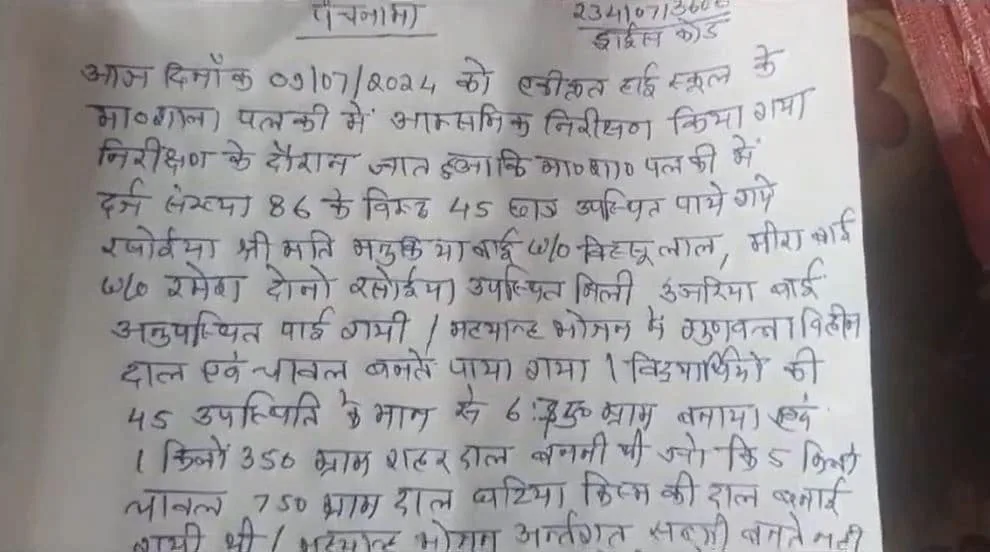 पंचनामा
डाईस कोड
आज दिनाँक 09/07/2024 को एकीकृत हाई स्कूल के
मा०शाला पलकी में आकस्मिक निरीक्षण किया गया
निरीक्षण के दौरान ज्ञात हुआ कि मा०शा० पलकी में
दर्ज संख्या 86 के विरूद्ध 45 छात्र उपस्थित पाये गये
रसोईया श्री मति बाई w/o लाल, मीरा बाई
w/o रमेश दोनो रसोईया उपस्थित मिली बाई
अनुपस्थित पाई गयी / मध्यान्ह भोजन में गुणवत्ता विहीन
दाल एवं चावल बनते पाया गया । विद्यार्थियो की
45 उपस्थिति के मान से 6 ग्राम बनाया एवं
1 किलो 350 ग्राम राहर दाल बननी थी जो कि 5 किलो
चावल 750 ग्राम दाल घटिया किस्म की दाल बनाई
गयी थी / मध्यान्ह भोजन अर्न्तगत सब्जी बनते नही